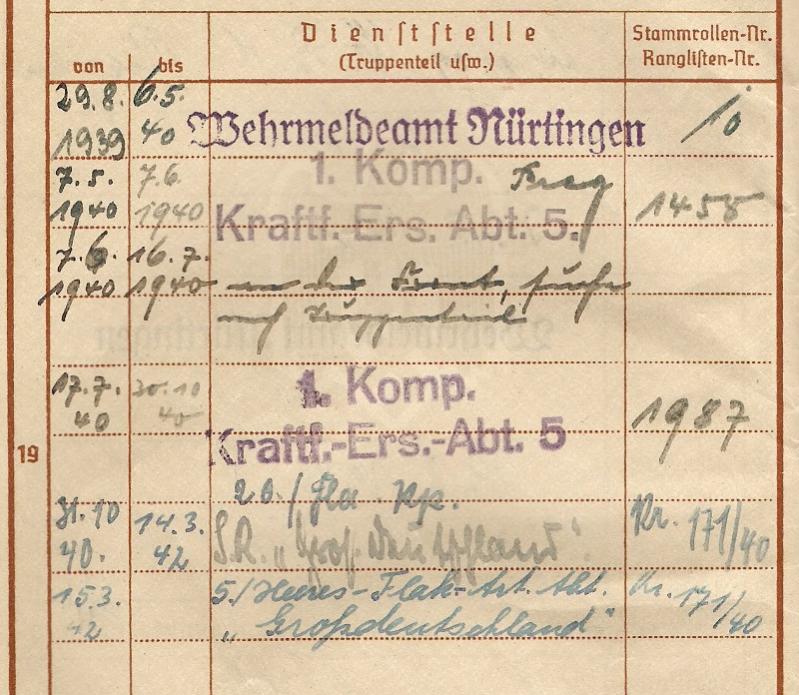 Dienststelle
(Truppenteil usw.)
Stammrollen-Nr.
Ranglisten-Nr.
von bis
29.8. 6.5.
1939 40 Wehrmeldeamt Nürtingen 10
7.5. 7.6. 1. Komp.
1940 1940 Kraftf. Ers. Abt. 5. 1455
7.6. 16.7.
1940 1940 an der Front, suche
nach Truppenteil
17.7. 30.10 1. Komp.
40 40 Kraftf.-Ers.-Abt. 5 1987
19
20./Fla. Kp.
31.10 14.3. Kr. 171/40
40. 42 I.R. „Großdeutschland"
15.3. 5./Heeres-Flak-Art. Abt. Kr. 171/40
42 „Großdeutschland"